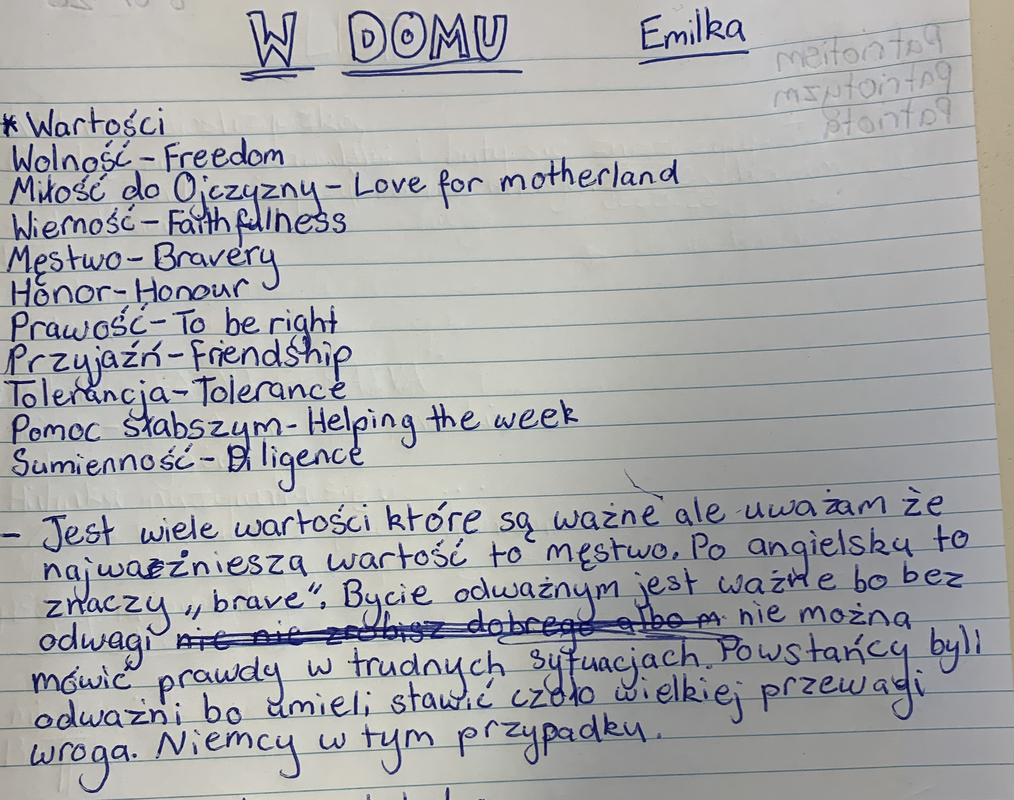 W DOMU Emilka
Patriotism
Patriotyzm
Patriota
* Wartości
Wolność - Freedom
Miłość do Ojczyzny - Love for motherland
Wierność - Faithfulness
Męstwo - Bravery
Honor - Honour
Prawość - To be right
Przyjaźń - friendship
Tolerancja - Tolerance
Pomoc słabszym - Helping the week
Sumienność - Diligence
- Jest wiele wartości które są ważne ale uważam że
najważniesza wartość to męstwo. Po angielsku to
znaczy „brave". Bycie odważnym jest ważne bo bez
odwagi nic nie zrobisz dobrego albo m nie można
mówić prawdy w trudnych sytuacjach. Powstańcy byli
odważni bo umieli stawić czoło wielkiej przewagi
wroga. Niemcy w tym przypadku.